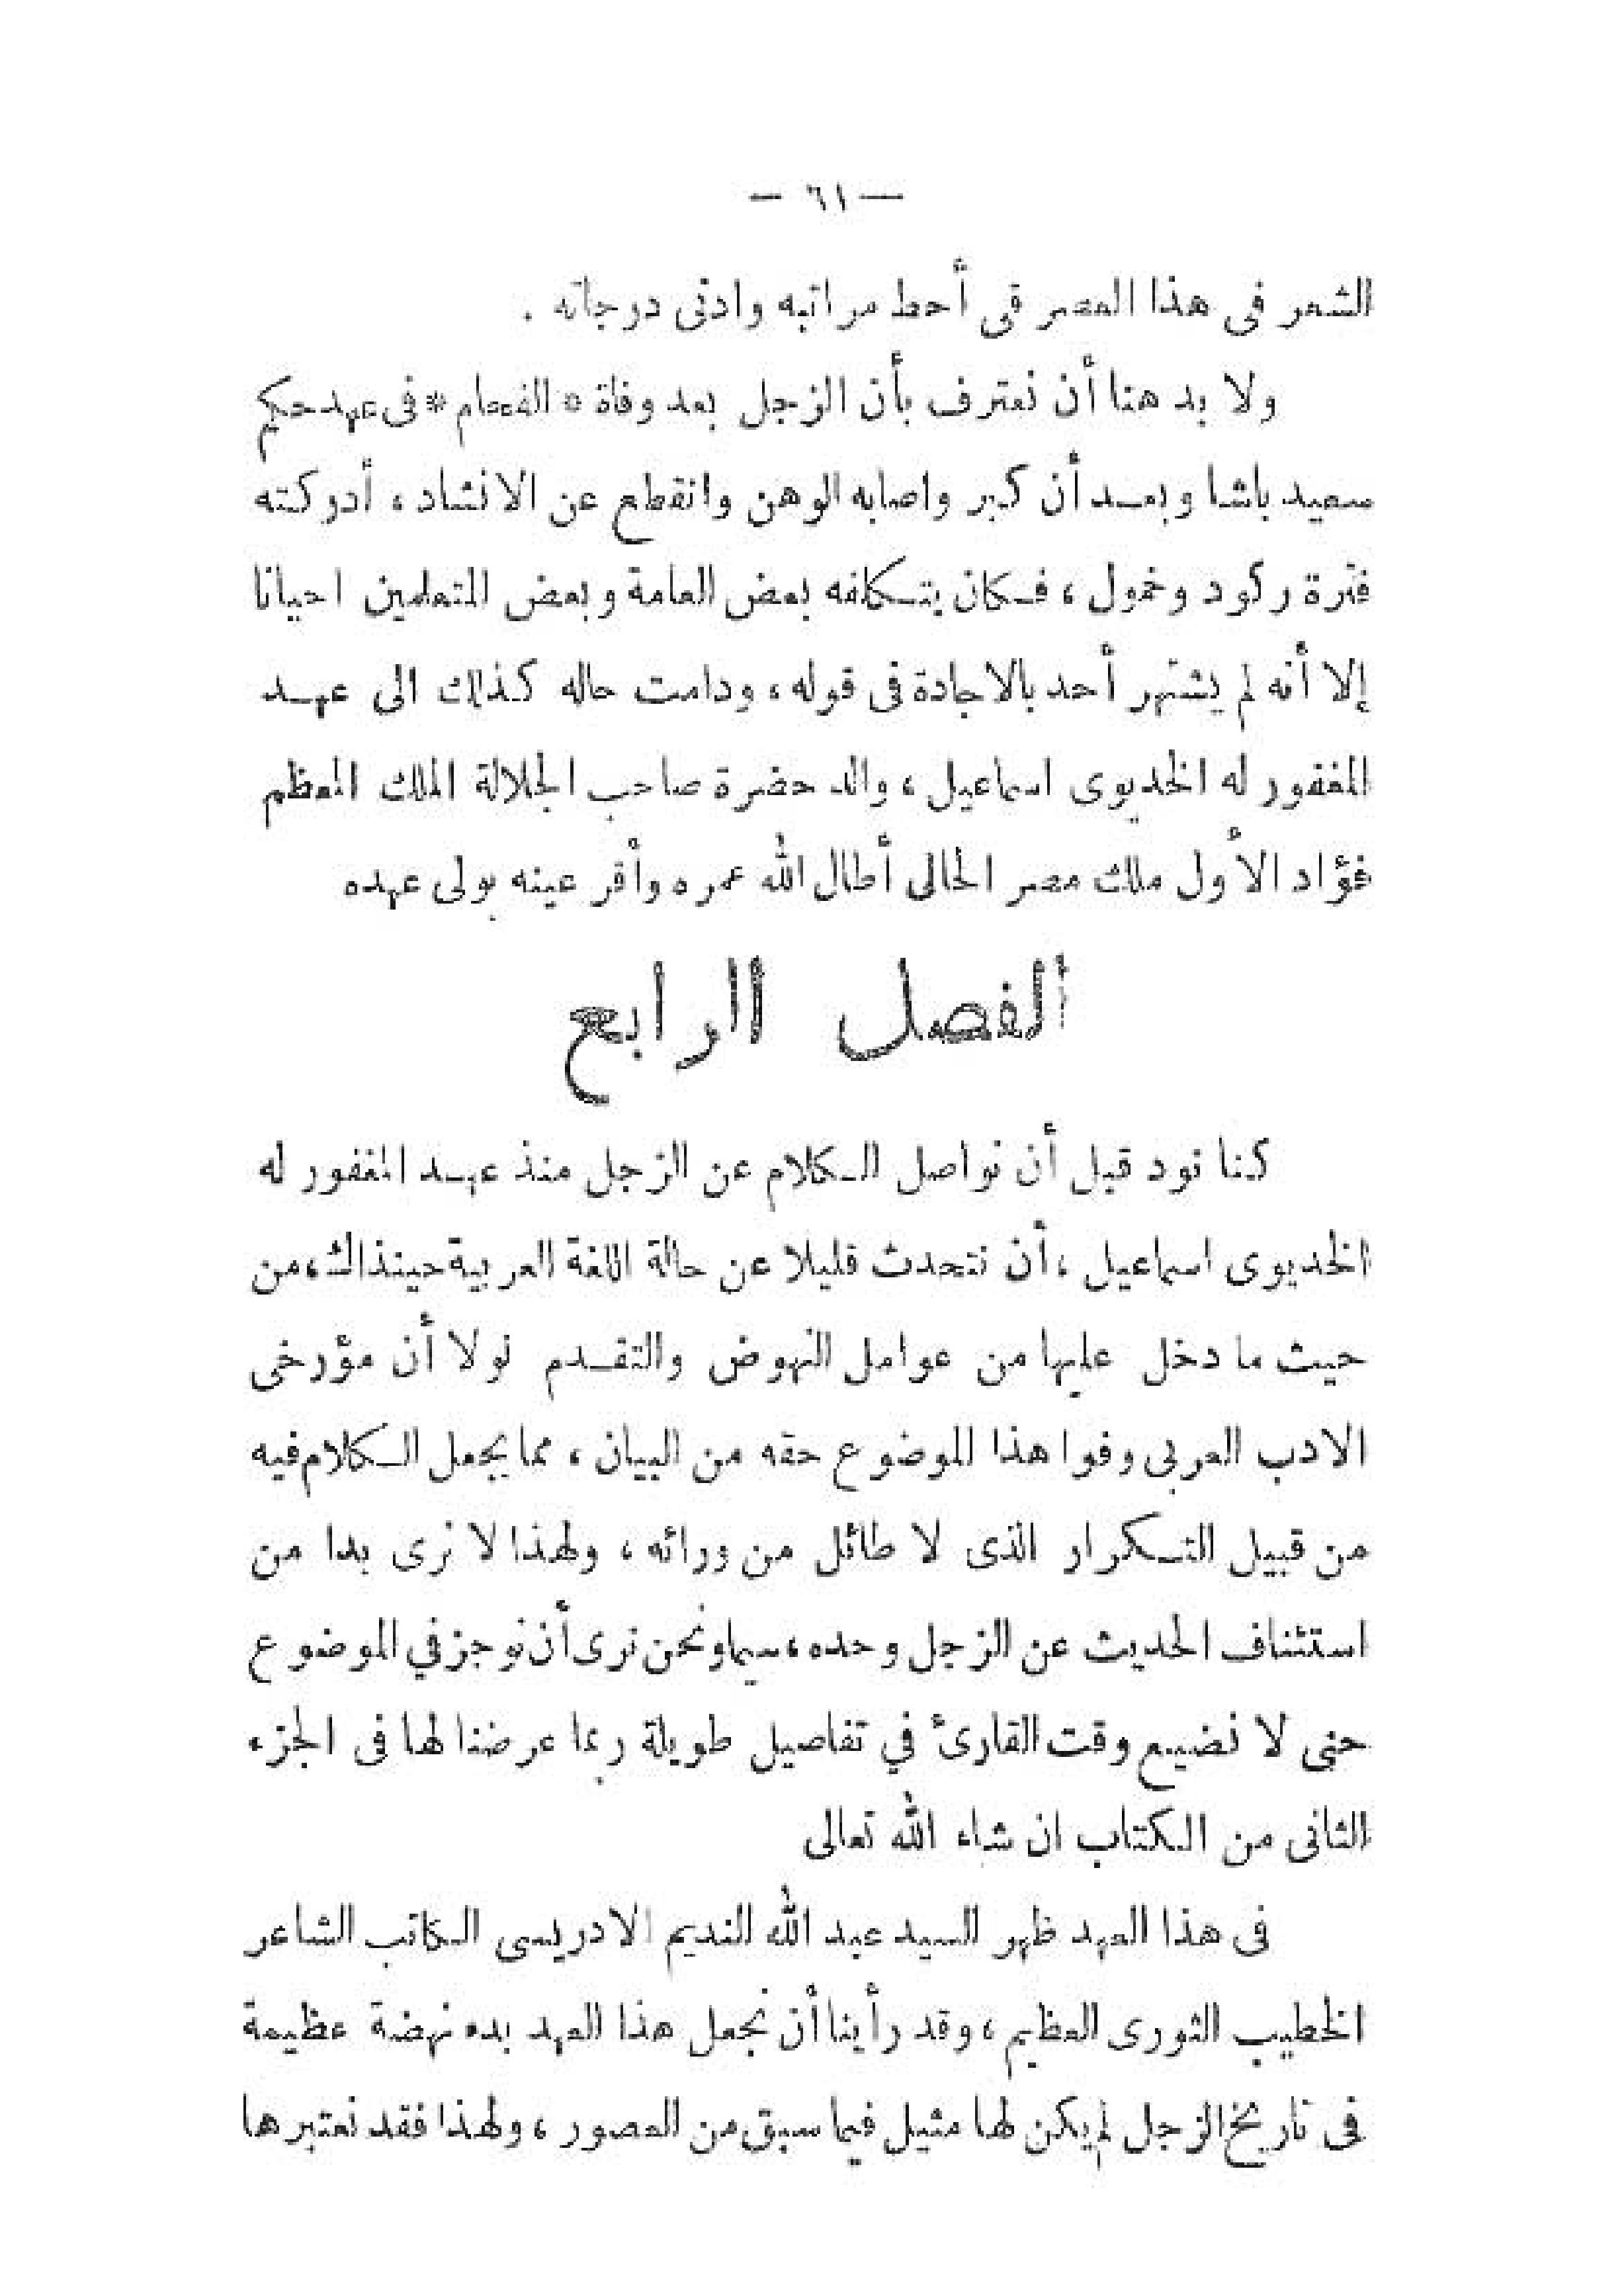 — ٦١ —
الشعر فى هذا العصر فى أحط مراتبه وادنى درجاته .
ولا بد هنا أن نعترف بأن الزجل بعد وفاة * الفحام * فى عهد حكم
سعيد باشا وبعد أن كبر واصابه الوهن وانقطع عن الانشاد ، أدركته
فترة ركود وخمول ، فكان يتكلفه بعض العامة وبعض المتعلمين احيانا
إلا أنه لم يشتهر أحد بالاجادة فى قوله ، ودامت حاله كذلك الى عهد
المغفور له الخديوى اسماعيل ، والد حضرة صاحب الجلالة الملك المعظم
فؤاد الأول ملك مصر الحالى أطال الله عمره وأقر عينه بولى عهده
الفصل الرابع
كنا نود قبل أن نواصل الكلام عن الزجل منذ عهد المغفور له
الخديوى اسماعيل ، أن نتحدث قليلا عن حالة اللغة العربية حينذاك ، من
حيث ما دخل عليها من عوامل النهوض والتقدم لولا أن مؤرخى
الادب العربى وفوا هذا الموضوع حقه من البيان ، مما يجعل الكلام فيه
من قبيل التكرار الذى لا طائل من ورائه ، ولهذا لا نرى بدا من
استئناف الحديث عن الزجل وحده ، سيما ونحن نرى أن نوجز في الموضوع
حتى لا نضيع وقت القارئ في تفاصيل طويلة ربما عرضنا لها فى الجزء
الثانى من الكتاب ان شاء الله تعالى
فى هذا العهد ظهر السيد عبد الله النديم الادريسى الكاتب الشاعر
الخطيب الثورى العظيم ، وقد رأينا أن نجعل هذا العهد بدء نهضة عظيمة
فى تاريخ الزجل لم يكن لها مثيل فيما سبق من العصور ، ولهذا فقد نعتبرها